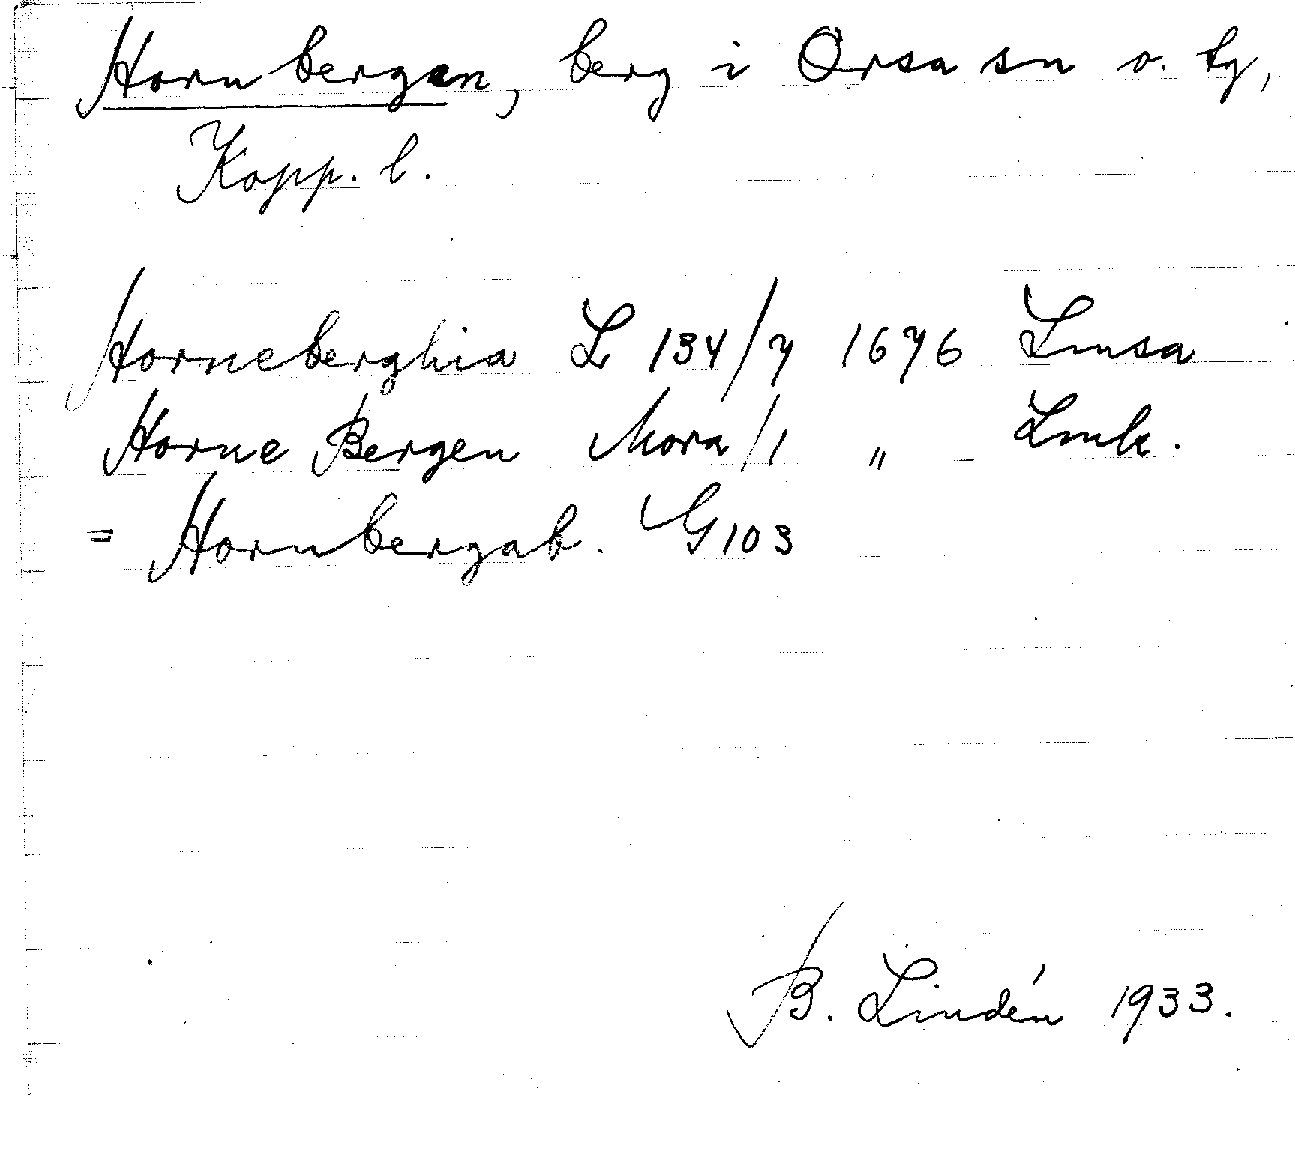 Hornbergen, berg i Orsa sn o. tg,
Kopp. l.
Horneberghia L 134/7 1676 Lmsa
Horne Bergen Mora/1 „ Lmk.
= Hornbergab. G103
B. Lindén 1933.